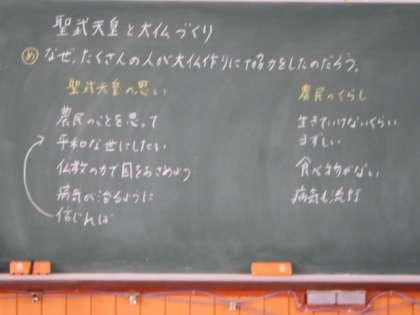 聖武天皇と大仏づくり
め なぜ、たくさんの人が大仏作りに協力をしたのだろう。
聖武天皇の思い
農民のことを思って
平和な世にしたい
仏教の力で国をおさめよう
病気が治るように
信じれば
農民のくらし
生きていけないくらい
まずしい
食べ物がない
病気も流行